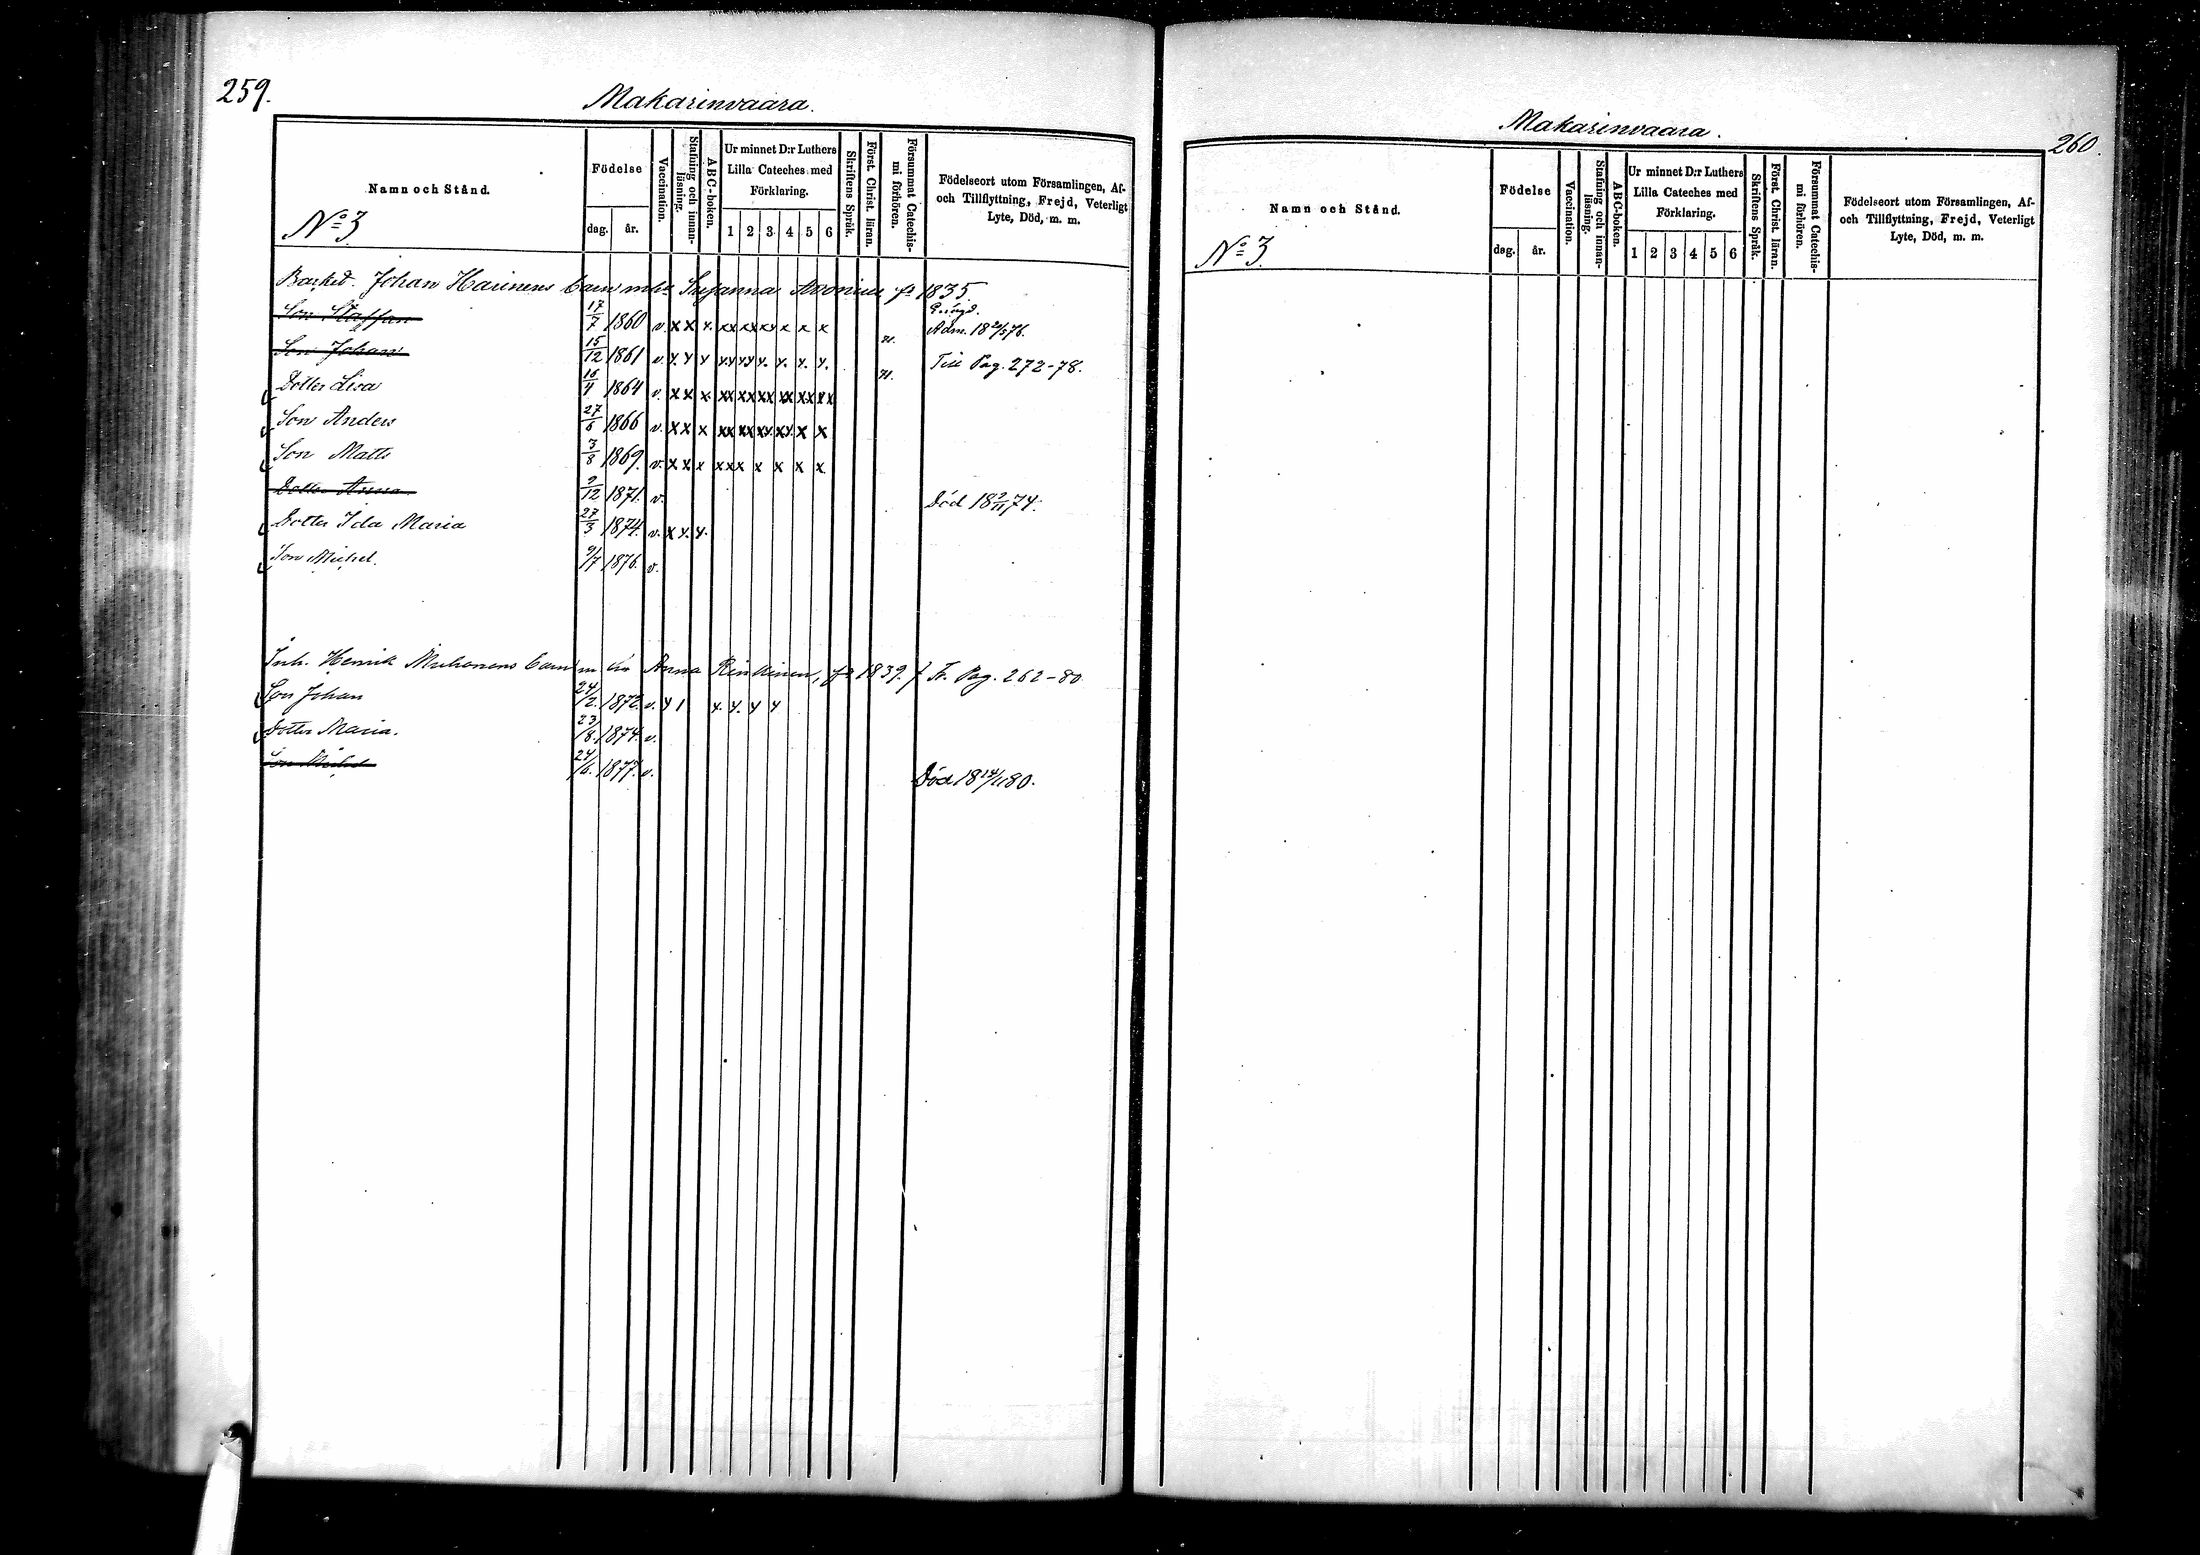 259.
Makarinvaara.
Namn och Stånd.
No 3
Födelse
dag. år.
Vaccination.
Stafning och innanläsning.
ABC-boken.
Ur minnet D:r Luthers Lilla Cateches med Förklaring.
1 2 3 4 5 6
Skriftens Språk.
Först. Christ. läran.
Försummat Catechismi förhören.
Födelseort utom Församlingen, Af- och Tillflyttning, Frejd, Veterligt Lyte, Död, m. m.
Johan Harinens barn m. Susanna fd 1835
Son Staffan 17/7 1860 v. x x x. xx xx xx x x x Adm. 1876.
Son Johan 15/12 1861 v. x. x x x.x xx x. x. x. x. n. Till Pag. 272-78.
Dotter Lisa 16/4 1864 v. x x x. xx xx xx xx xx xx n.
Son Anders 27/6 1866 v. x x x xx xx xx xx x x
Son Matts 3/8 1869. v. x x x xx x x x x x
Dotter Anna 9/12 1871. v. Död 18 2/11 74.
Dotter Ida Maria 27/3 1874. v. x x. x.
Son Michel. 9/7 1876. v.
Inh. Henrik barn m. Anna fd 1839. f Fr. Pag. 262-80
Son Johan 24/2. 1872. v. x 1 x. x. x x
Dotter Maria. 23/8. 1874. v.
Son Michel 24/6. 1877. v. Död 1880.
Makarinvaara.
260.
Namn och Stånd.
No 3
Födelse
dag. år.
Vaccination.
Stafning och innanläsning.
ABC-boken.
Ur minnet D:r Luthers Lilla Cateches med Förklaring.
1 2 3 4 5 6
Skriftens Språk.
Först. Christ. läran.
Försummat Catechismi förhören.
Födelseort utom Församlingen, Af- och Tillflyttning, Frejd, Veterligt Lyte, Död, m. m.